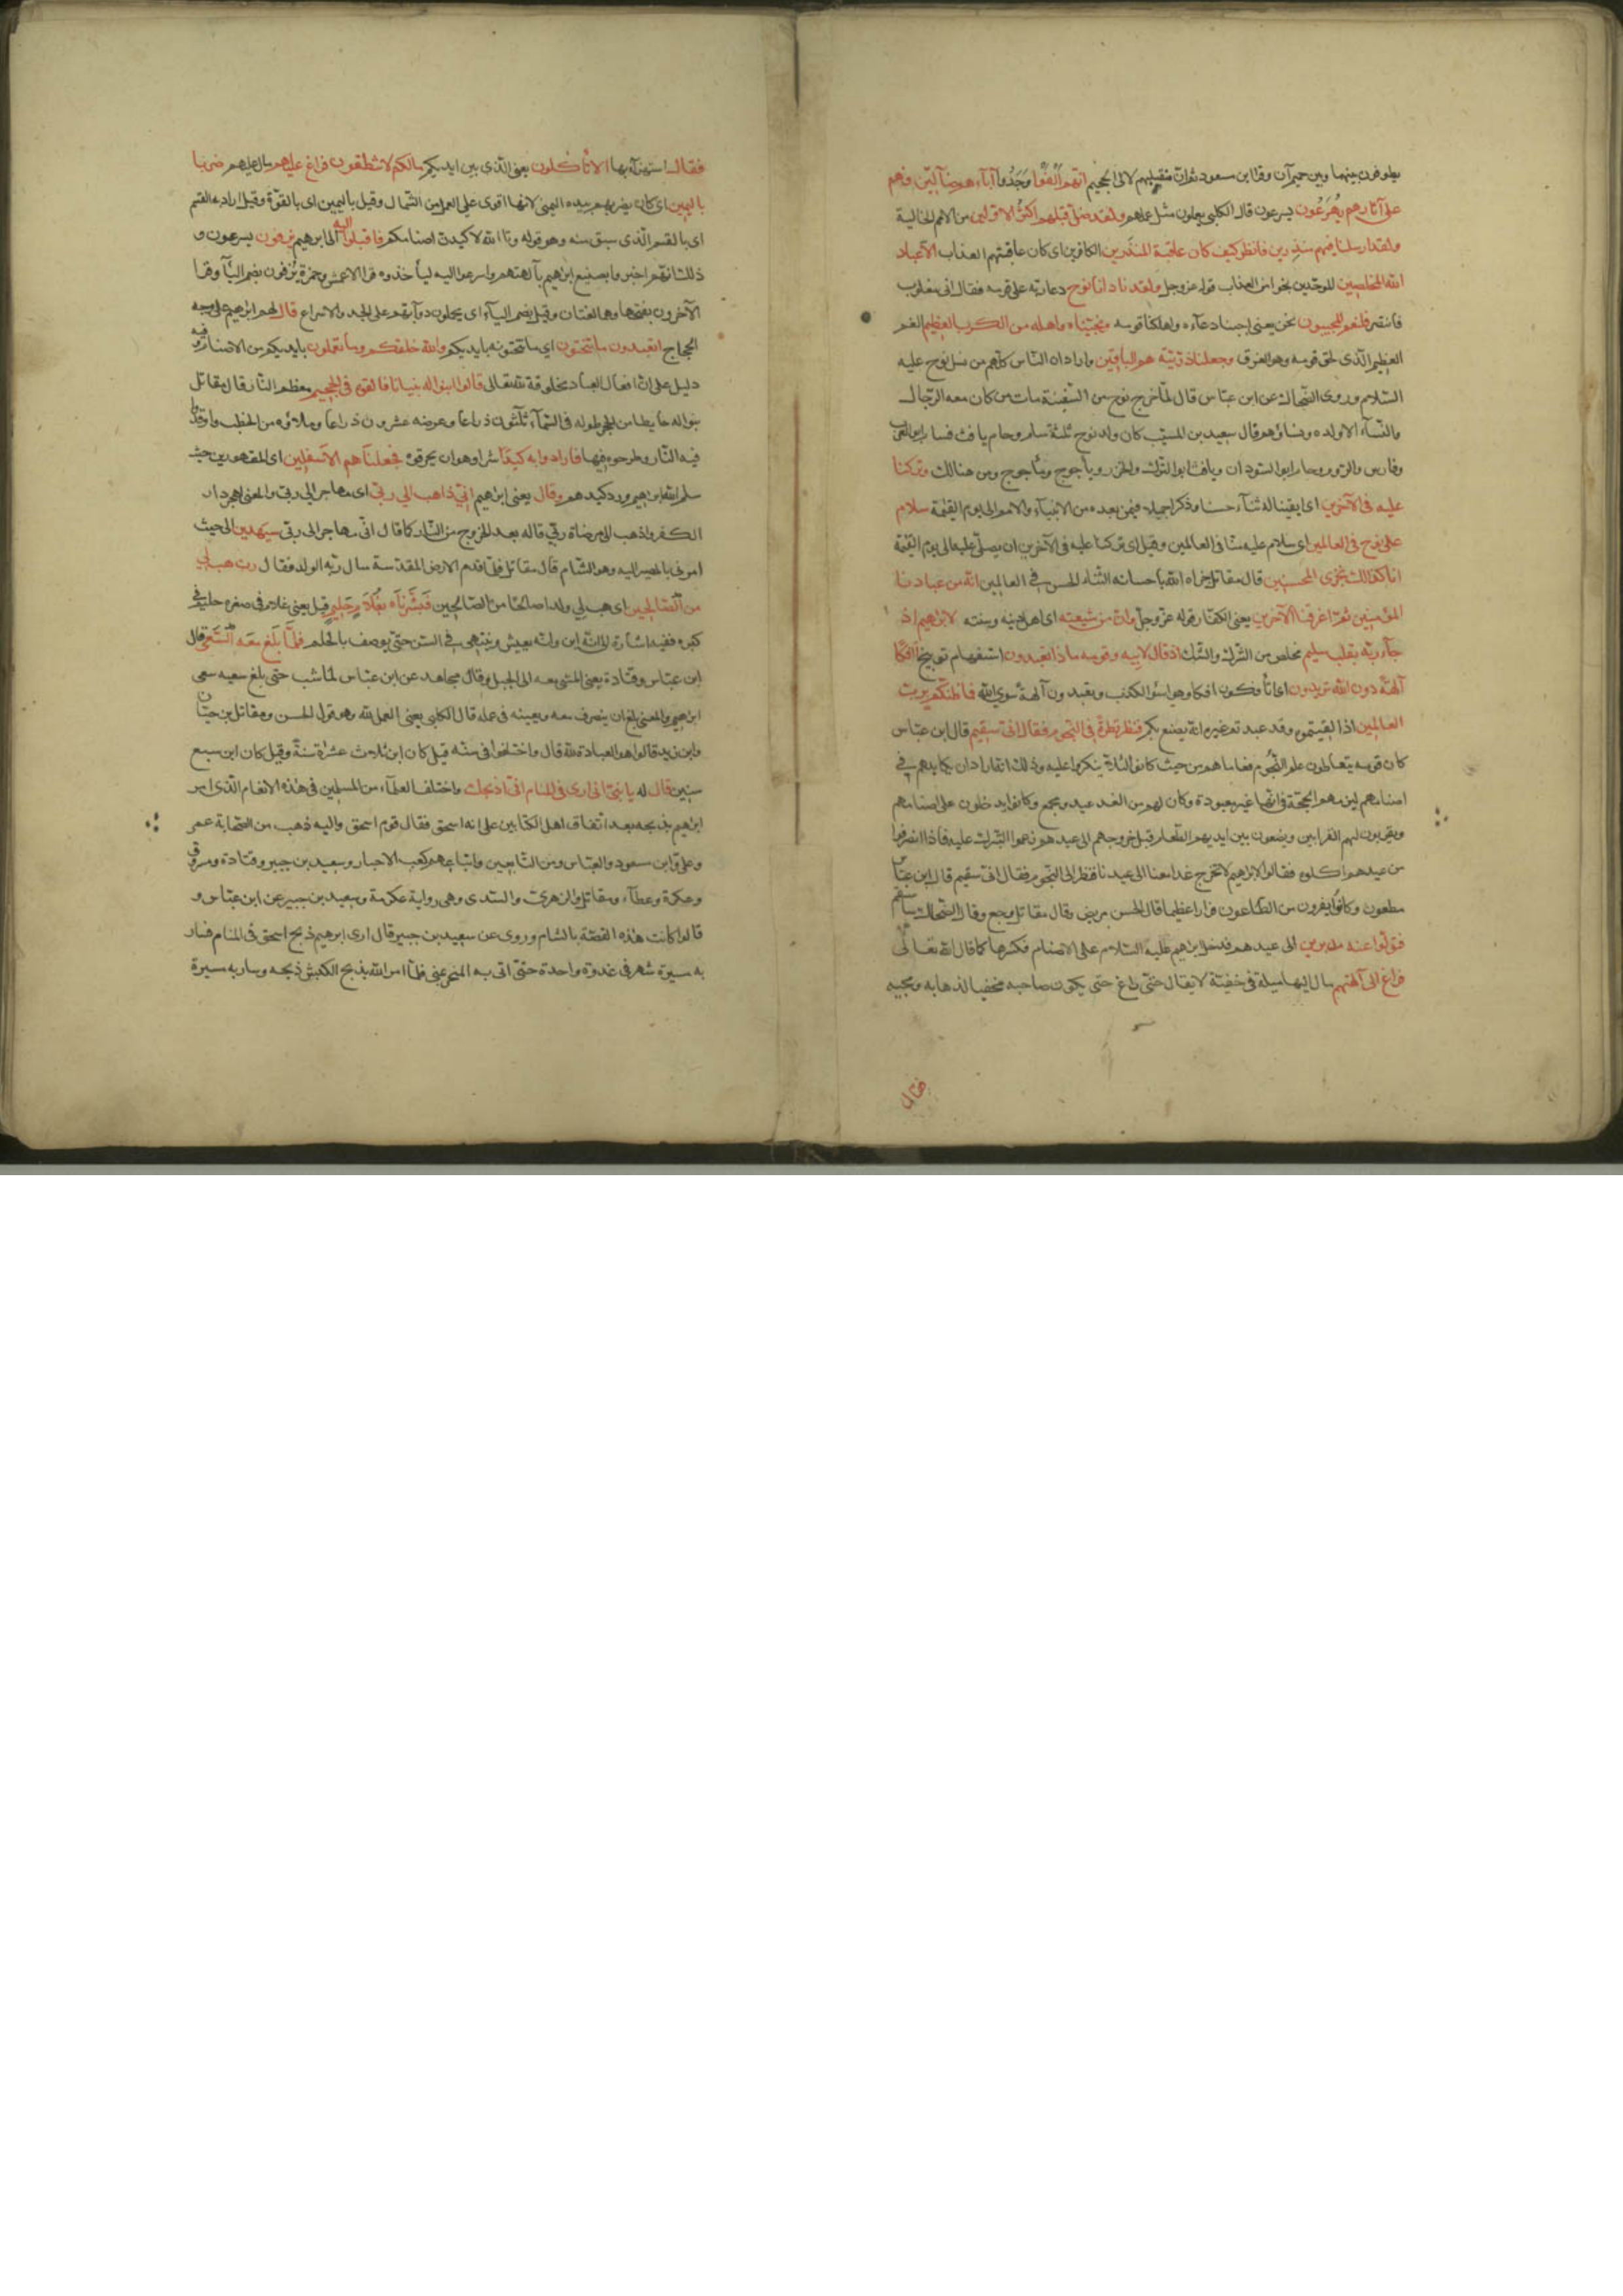 يطوفون بينهما وبين حميم آن وقرا ابن مسعود ثم ان مقيلهم لالى الجحيم انهم الفوا وجدوا آباءهم ضآلين فهم
على آثارهم يهرعون يسرعون قال الكلبى يعملون مثل عملهم ولقد ضل قبلهم اكثر الاولين من الامم الخالية
ولقد ارسلنا فيهم منذرين فانظر كيف كان عاقبة المنذرين الكافرين اى كان عاقبتهم العذاب الا عباد
الله المخلصين الموحدين نجوا من العذاب قوله عز وجل ولقد نادانا نوح دعا ربه على قومه فقال انى مغلوب
فانتصر فلنعم المجيبون نحن يعنى اجبنا دعآءه واهلكنا قومه ونجيناه واهله من الكرب العظيم الغم
العظيم الذى لحق قومه وهو الغرق وجعلنا ذريته هم الباقين واراد ان الناس كلهم من نسل نوح عليه
السلام وروى الضحاك عن ابن عباس قال لما خرج نوح من السفينة مات من كان معه الرجال
والنسآء الا ولده ونساؤهم وقال سعيد بن المسيب كان ولد نوح ثلثة سام وحام يافث فسام ابو العرب
وفارس والروم وحام ابو السودان ويافث ابو الترك والخزر ويأجوج ومأجوج ومن هنالك وتركنا
عليه فى الآخرين اى ابقينا له ثنآء حسنا وذكرا جميلا فيمن بعده من الانبيآء والامم الى يوم القيمة سلام
على نوح فى العالمين اى سلام عليه منا فى العالمين وقيل اى تركنا عليه فى الآخرين ان يصلى عليه الى يوم القيمة
انا كذلك نجزى المحسنين قال مقاتل جزاه الله باحسانه الثناء الحسن فى العالمين انه من عبادنا
المؤمنين ثم اغرقنا الآخرين يعنى الكفار قوله عز وجل وان من شيعته اى اهل دينه وسنته لابراهيم اذ
جآء ربه بقلب سليم مخلص من الشرك والشك اذ قال لابيه وقومه ماذا تعبدون استفهام توبيخ أئفكا
آلهة دون الله تريدون اى أتأفكون افكا وهو اسؤ الكذب وتعبدون آلهة سوى الله فما ظنكم برب
العالمين اذا لقيتموه وقد عبدتم غيره انه يصنع بكم فنظر نظرة فى النجوم فقال انى سقيم قال ابن عباس
كان قومه يتعاطون علم النجوم فعاملهم من حيث كانوا لئلا ينكروا عليه وذلك انه اراد ان يكايدهم فى
اصنامهم ليلزمهم الحجة فى انها غير معبودة وكان لهم من الغد عيد ومجمع وكانوا يدخلون على اصنامهم
ويقربون لهم القرابين ويضعون بين ايديهم الطعام قبل خروجهم الى عيدهم زعموا التبرك عليه فاذا انصرفوا
من عيدهم اكلوه فقالوا لابراهيم لا تخرج غدا معنا الى عيدنا فنظر الى النجوم فقال انى سقيم قال ابن عباس
مطعون وكانوا يفرون من الطاعون فرارا عظيما قال الحسن مريض وقال مقاتل وجع وقال الضحاك سأسقم
فتولوا عنه مدبرين الى عيدهم فدخل ابراهيم عليه السلام على الاصنام فكسرها كما قال الله تعالى
فراغ الى آلهتهم مال اليها ميلة فى خفية لا يقال حتى راغ حتى يكون صاحبه مخفيا لذهابه ومجيه
فقال
فقال استهزآء بها الا تأكلون يعنى الذى بين ايديكم مالكم لا تنطقون فراغ عليهم مال عليهم ضربا
باليمين اى كان يضربهم بيده اليمنى لانها اقوى على العمل من الشمال وقيل باليمين اى بالقوة وقيل اراد به القسم
اى بالقسم الذى سبق منه وهو قوله وتا الله لاكيدن اصنامكم فاقبلوا اليه الى ابرهيم يزفون يسرعون و
ذلك انهم اخبروا بصنيع ابراهيم بآلهتهم واسرعوا اليه ليأخذوه قرا الاعمش وحمزة يزفون بضم اليآء وقرا
الآخرون بفتحها وهما لغتان وقيل بضم اليآء اى يحملون دوابهم على الجد والاسراع قال لهم ابراهيم على وجه
الحجاج اتعبدون ما تنحتون اى ما تنحتونه بايديكم والله خلقكم وما تعملون بايديكم من الاصنام وفيه
دليل على ان افعال العباد مخلوقة لله تعالى قالوا ابنوا له بنيانا فالقوه فى الجحيم معظم النار قال مقاتل
بنوا له حايطا من الحجر طوله فى السمآء ثلثون ذراعا وعرضه عشرون ذراعا وملاؤه من الحطب واوقدوا
فيه النار وطرحوه فيها فارادوا به كيدا شرا وهو ان يحرقوه فجعلناهم الاسفلين اى المقهورين حيث
سلم الله ابراهيم ورد كيدهم وقال يعنى ابراهيم انى ذاهب الى ربى اى مهاجر الى ربى والمعنى اهجر دار
الكفر واذهب الى مرضاة ربى قاله بعد الخروج من النار كما قال انى مهاجر الى ربى سيهدين الى حيث
امرنى بالمصير اليه وهو الشام قال مقاتل فلما قدم الارض المقدسة سال ربه الولد فقال رب هب لى
من الصالحين اى هب لى ولدا صالحا من الصالحين فبشرناه بغلام حليم قيل يعنى غلام فى صغره حليم فى
كبره ففيه اشارة الى انه ابن وانه يعيش وينتهى فى السن حتى يوصف بالحلم فلما بلغ معه السعى قال
ابن عباس وقتادة يعنى المشى معه الى الجبل وقال مجاهد عن ابن عباس لما شب حتى بلغ سعيه سعى
ابراهيم والمعنى بلغ ان يتصرف معه ويعينه فى عمله قال الكلبى يعنى العمل لله وهو قول الحسن ومقاتل بن حيان
وابن زيد قالوا هو العبادة لله قال واختلفوا فى سنه قيل كان ابن ثلاث عشرة سنة وقيل كان ابن سبع
سنين قال له يا بنى انى ارى فى المنام انى اذبحك واختلف العلمآء من المسلمين فى هذه الانغام الذى امر
ابراهيم بذبحه بعد اتفاق اهل الكتابين على انه اسحق فقال قوم اسحق واليه ذهب من الصحابة عمر
وعلى وابن مسعود والعباس ومن التابعين واتباعهم كعب الاحبار وسعيد بن جبير وقتادة ومسروق
وعكرمة وعطآء ومقاتل والزهرى والسدى وهى رواية عكرمة وسعيد بن جبير عن ابن عباس و
قالوا كانت هذه القصة بالشام وروى عن سعيد بن جبير قال ارى ابرهيم ذبح اسحق فى المنام فسار
به مسيرة شهر فى غدوة واحدة حتى اتى به المنحر بمنى فلما امر الله بذبح الكبش ذبحه وسار به مسيرة